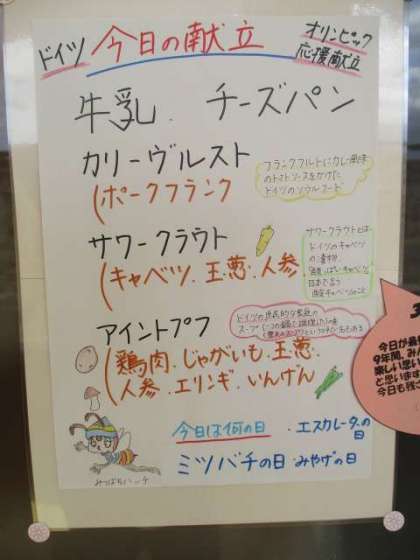 ドイツ 今日の献立 オリンピック
応援献立
牛乳. チーズパン
カリーヴルスト
(ポークフランク
フランクフルトにカレー風味
のトマトソースをかけた
ドイツのソウルフード
サワークラウト
(キャベツ.玉葱.人参.
サワークラウトとは
ドイツのキャベツ
の漬物
アイントプフ
(鶏肉.じゃがいも.玉葱.
人参.エリンギ.いんげん
ドイツの
今日は何の日 ・エスカレーターの
日
ミツバチの日・みやげの日
みつばちハッチ
今日が最
9年間、み
楽しい思い
と思います
今日も残さ